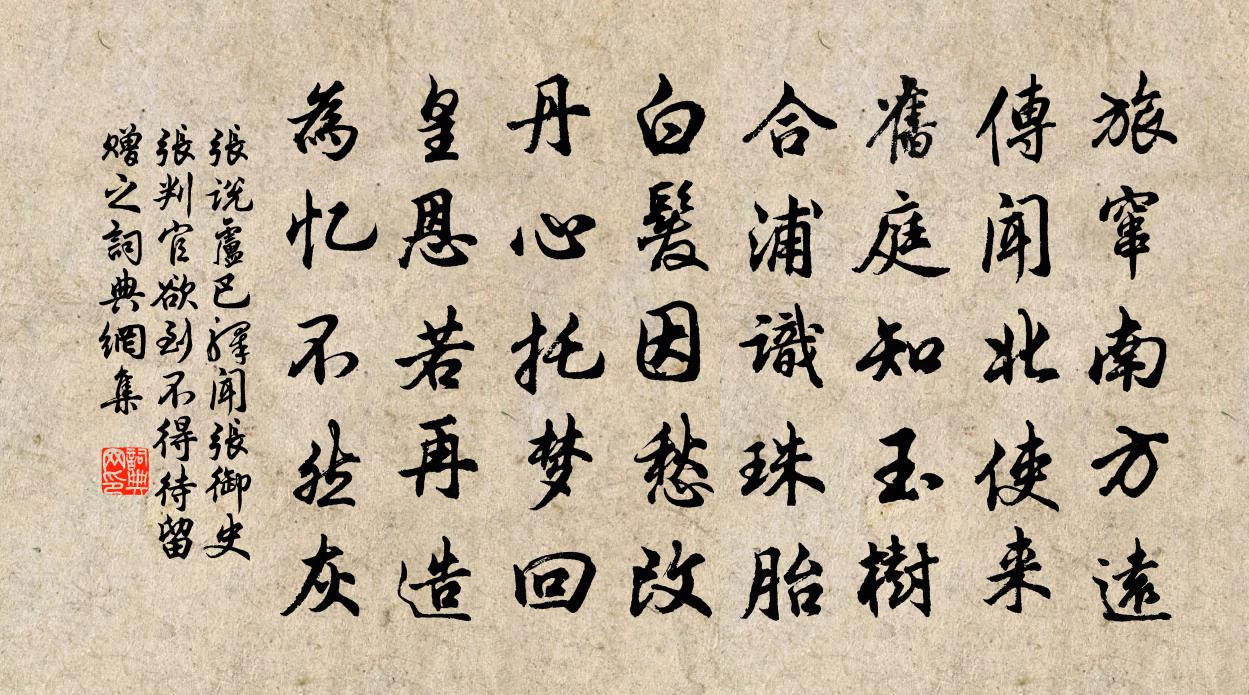 旅竄南方遠
傳聞北使来
舊庭知玉樹
合浦識珠胎
白髮因愁改
丹心托梦回
皇恩若再造
為忆不然灰
張说盧巴驛闻張御史
張判官欲到不得待留
赠之詞典網集
詞典网印